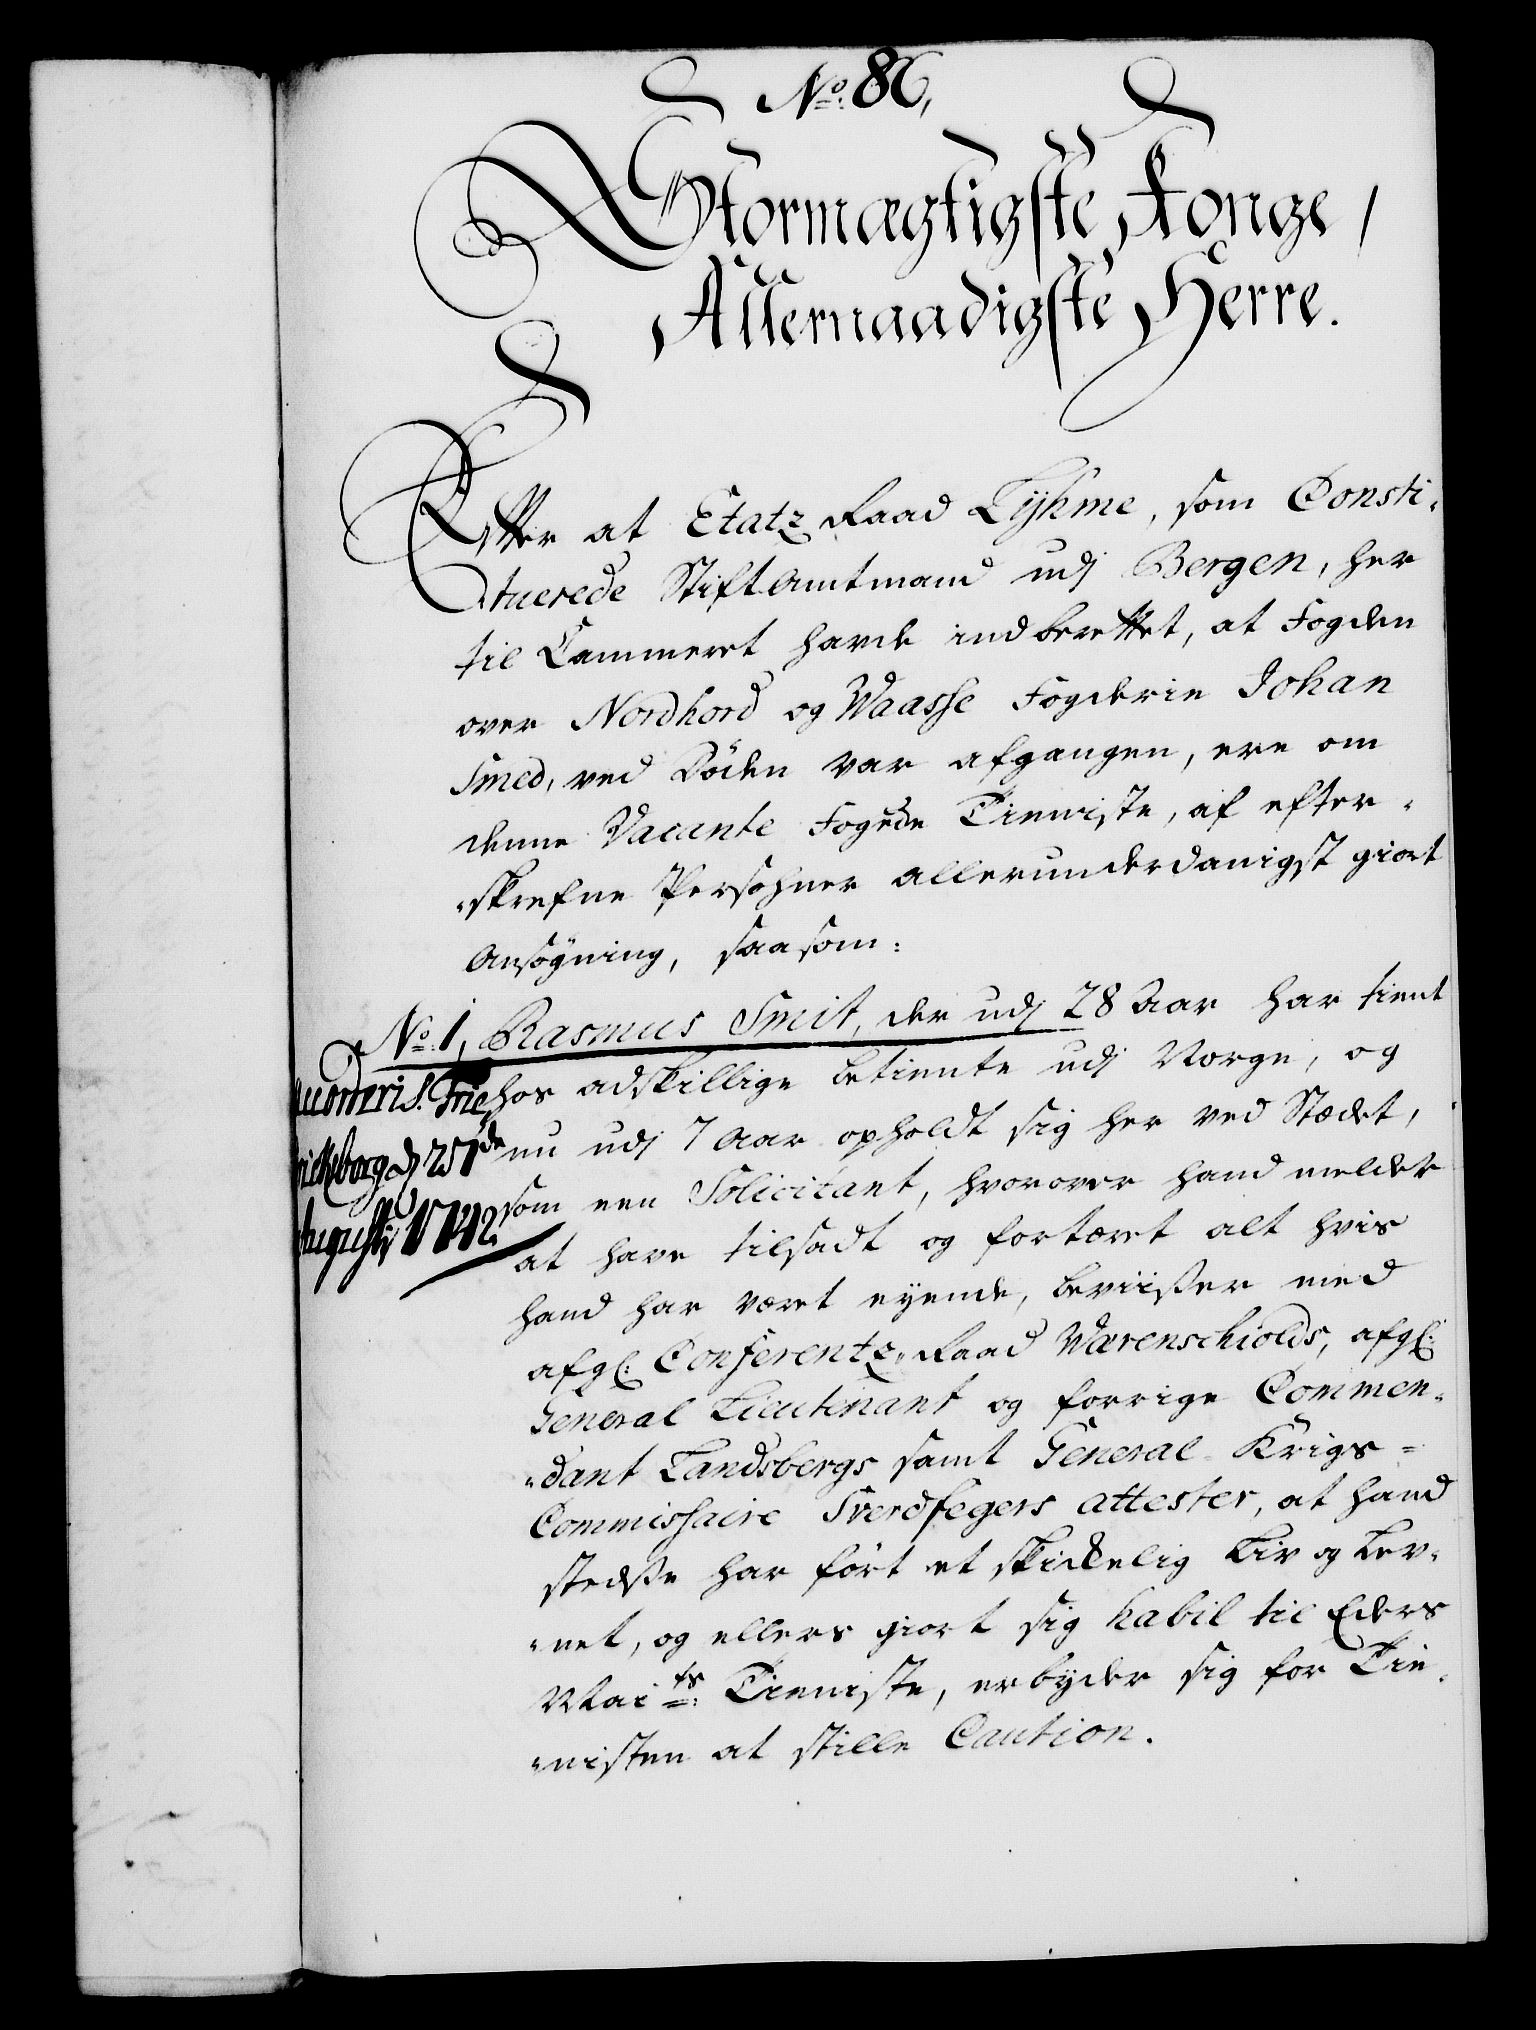 No: 86,
Stormægtigste Konge /
Allernaadigste Herre.
Efter at Etatz Raad Lyhme, som Consti-
tuerede Stiftamtmand udj Bergen, her
til Cammeret havde indberettet, at Fogden
over Nordhord og Waasse Fogderie Johan
Smed, ved Døden var afgangen, ere om
denne Vacante Fogede Tieniste, af efter-
skrefne Persohner allerunderdanigst giort
Ansøgning, saasom:
No: 1, Rasmus Smit, der udj 28 Aar har tient
hos adskillige betiente udj Norge, og
nu udj 7 Aar opholdt sig her ved Stædet,
som een Solicitant, hvorover hand melder
at have tilsadt og fortæret alt hvis
hand har været eyende, beviisser med
afgl: Conferentz-Raad Wærenschiolds, afgl:
General Lieutenant og forrige Commen-
dant Landsbergs samt General-Krigs-
Commissaire Sverdfegers attester, at hand
stedsse har ført et skickelig Liv og Lev-
net, og ellers giort sig habil til Eders
Maits: Tieniste, erbyder sig for Tie-
nisten at stille Caution.
Frie
d 25de
Augusti 1742.